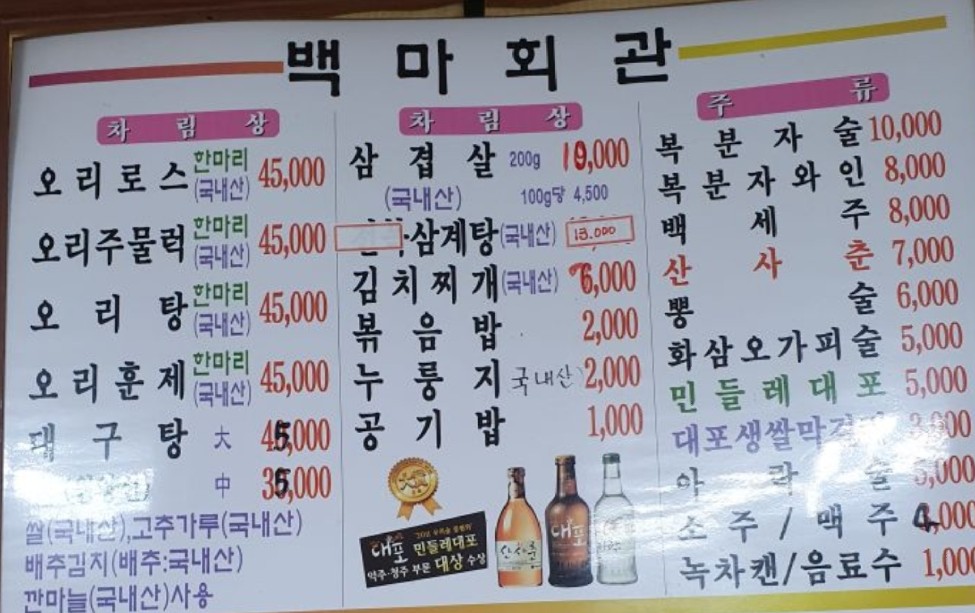 백마회관
차림상
오리로스 한마리 (국내산) 45,000
오리주물럭 한마리 (국내산) 45,000
오리탕 한마리 (국내산) 45,000
오리훈제 한마리 (국내산) 45,000
대구탕 大 45,000
中 35,000
쌀(국내산),고추가루(국내산)
배추김지(배추:국내산)
깐마늘(국내산)사용
차림상
삼겹살 200g 10,000
(국내산) 100g당 4,500
삼계탕(국내산) 13.000
김치찌개(국내산) 6,000
볶음밥 2,000
누룽지 국내산 2,000
공기밥 1,000
대포 민들레대포
약주·청주 부문 대상 수상
산사춘
대포
주류
복분자술 10,000
복분자와인 8,000
백세주 8,000
산사춘 7,000
뽕술 6,000
화삼오가피술 5,000
민들레대포 5,000
대포생쌀막걸리 3,000
아락술 5,000
소주/맥주 4,000
녹차캔/음료수 1,000